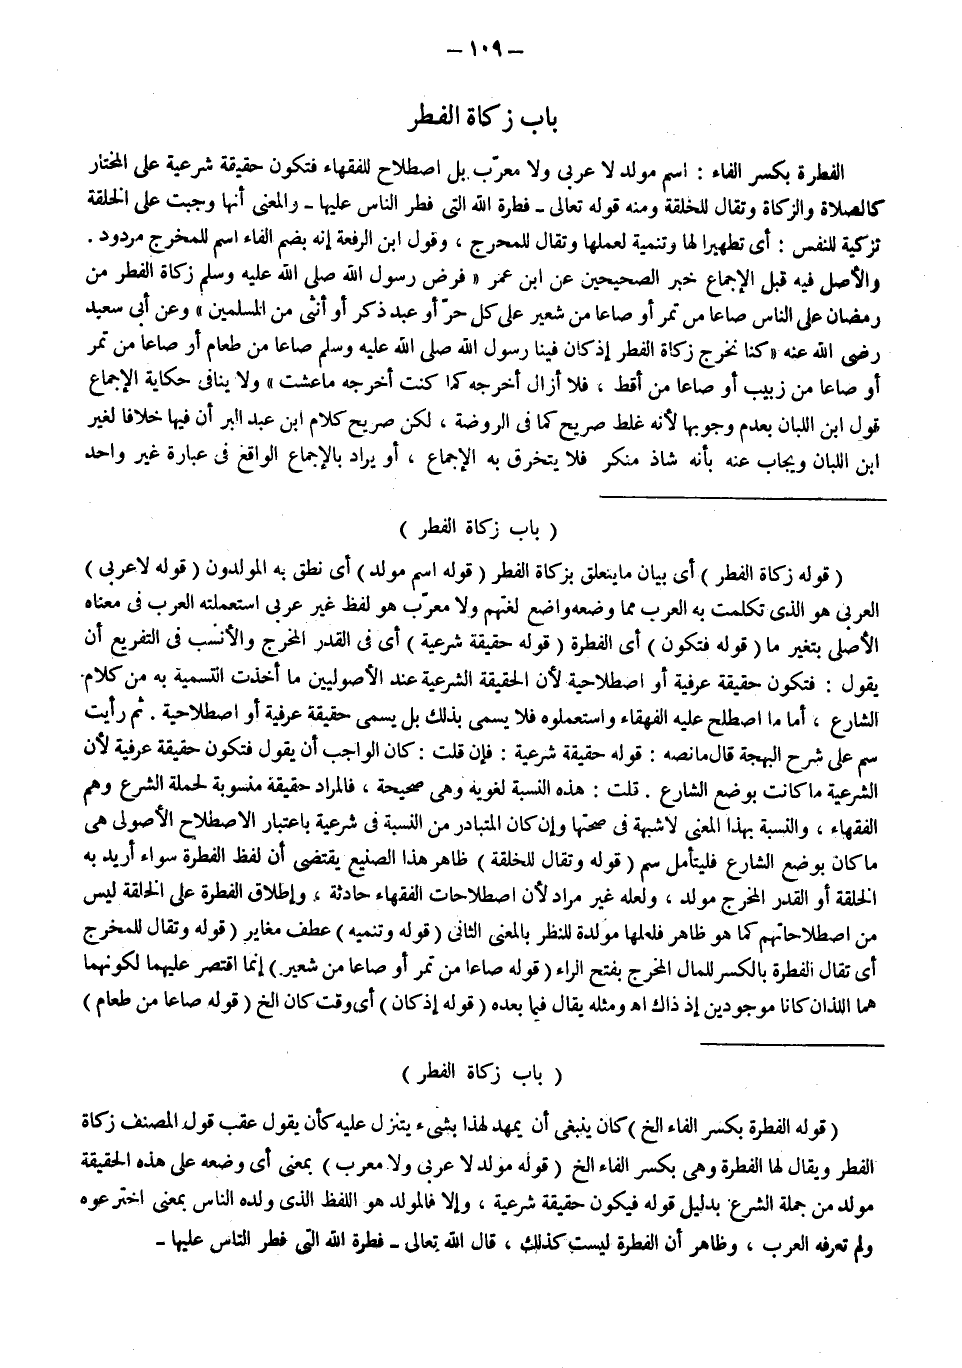 — ١٠٩ —
باب زكاة الفطر
الفطرة بكسر الفاء : اسم مولد لا عربى ولا معرّب بل اصطلاح للفقهاء فتكون حقيقة شرعية على المختار
كالصلاة والزكاة وتقال للخلقة ومنه قوله تعالى ـ فطرة الله التى فطر الناس عليها ـ والمعنى أنها وجبت على الخلقة
تزكية للنفس : أى تطهيرا لها وتنمية لعملها وتقال للمخرج ، وقول ابن الرفعة إنه بضم الفاء اسم للمخرج مردود .
والأصل فيه قبل الإجماع خبر الصحيحين عن ابن عمر « فرض رسول الله صلى الله عليه وسلم زكاة الفطر من
رمضان على الناس صاعا من تمر أو صاعا من شعير على كل حرّ أو عبد ذكر أو أنثى من المسلمين » وعن أبى سعيد
رضى الله عنه « كنا نخرج زكاة الفطر إذ كان فينا رسول الله صلى الله عليه وسلم صاعا من طعام أو صاعا من تمر
أو صاعا من زبيب أو صاعا من أقط ، فلا أزال أخرجه كما كنت أخرجه ماعشت » ولا ينافى حكاية الإجماع
قول ابن اللبان بعدم وجوبها لأنه غلط صريح كما فى الروضة ، لكن صريح كلام ابن عبد البر أن فيها خلافا لغير
ابن اللبان ويجاب عنه بأنه شاذ منكر فلا يتخرق به الإجماع ، أو يراد بالإجماع الواقع فى عبارة غير واحد
( باب زكاة الفطر )
( قوله زكاة الفطر ) أى بيان مايتعلق بزكاة الفطر ( قوله اسم مولد ) أى نطق به المولدون ( قوله لاعربى )
العربى هو الذى تكلمت به العرب مما وضعه واضع لغتهم ولا معرّب هو لفظ غير عربى استعملته العرب فى معناه
الأصلى بتغير ما ( قوله فتكون ) أى الفطرة ( قوله حقيقة شرعية ) أى فى القدر المخرج والأنسب فى التفريع أن
يقول : فتكون حقيقة عرفية أو اصطلاحية لأن الحقيقة الشرعية عند الأصوليين ما أخذت التسمية به من كلام
الشارع ، أما ما اصطلح عليه الفقهاء واستعملوه فلا يسمى بذلك بل يسمى حقيقة عرفية أو اصطلاحية . ثم رأيت
سم على شرح البهجة قال مانصه : قوله حقيقة شرعية : فإن قلت : كان الواجب أن يقول فتكون حقيقة عرفية لأن
الشرعية ما كانت بوضع الشارع . قلت : هذه النسبة لغويه وهى صحيحة ، فالمراد حقيقة منسوبة لحملة الشرع وهم
الفقهاء ، والنسبة بهذا المعنى لاشبهة فى صحتها وإن كان المتبادر من النسبة فى شرعية باعتبار الاصطلاح الأصولى هى
ما كان بوضع الشارع فليتأمل سم ( قوله وتقال للخلقة ) ظاهر هذا الصنيع يقتضى أن لفظ الفطرة سواء أريد به
الخلقة أو القدر المخرج مولد ، ولعله غير مراد لأن اصطلاحات الفقهاء حادثة ، وإطلاق الفطرة على الخلقة ليس
من اصطلاحاتهم كما هو ظاهر فلعلها مولدة للنظر بالمعنى الثانى ( قوله وتنميه ) عطف مغاير ( قوله وتقال للمخرج
أى تقال الفطرة بالكسر للمال المخرج بفتح الراء ( قوله صاعا من تمر أو صاعا من شعير ) إنما اقتصر عليهما لكونهما
هما اللذان كانا موجودين إذ ذاك اه ومثله يقال فيما بعده ( قوله إذ كان ) أى وقت كان الخ ( قوله صاعا من طعام )
( باب زكاة الفطر )
( قوله الفطرة بكسر الفاء الخ ) كان ينبغى أن يمهد لهذا بشىء يتنزل عليه كأن يقول عقب قول المصنف زكاة
الفطر ويقال لها الفطرة وهى بكسر الفاء الخ ( قوله مولد لا عربى ولا معرب ) بمعنى أى وضعه على هذه الحقيقة
مولد من حملة الشرع بدليل قوله فيكون حقيقة شرعية ، وإلا فالمولد هو اللفظ الذى ولده الناس بمعنى اخترعوه
ولم تعرفه العرب ، وظاهر أن الفطرة ليست كذلك ، قال الله تعالى ـ فطرة الله التى فطر الناس عليها ـ